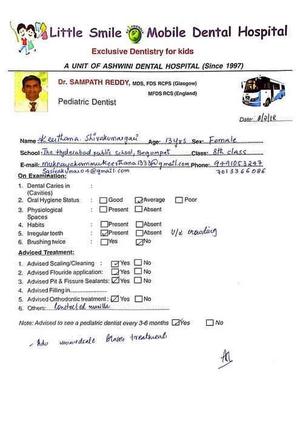 Little Smile Mobile Dental Hospital
Exclusive Dentistry for kids
A UNIT OF ASHWINI DENTAL HOSPITAL (Since 1997)
Dr. SAMPATH REDDY, MDS, FDS RCPS (Glasgow)
MFDS RCS (England)
Pediatric Dentist
Date:
Name Keerthana Shivakumargari Age: 13yrs Sex: Female
School: The Hyderabad public school, Begumpet Class: 8th class
E-mail: Phone:
On Examination:
1. Dental Caries in (Cavities) :
2. Oral Hygiene Status : Good Average Poor
3. Physiological Spaces : Present Absent
4. Habits : Present Absent
5. Irregular teeth : Present Absent U/L crowding
6. Brushing twice : Yes No
Advised Treatment:
1. Advised Scaling/Cleaning : Yes No
2. Advised Flouride application: Yes No
3. Advised Pit & Fissure Sealants: Yes No
4. Advised Filling in
5. Advised Orthodontic treatment : Yes No
6. Others:
Note: Advised to see a pediatric dentist every 3-6 months Yes No
- Adv immediate Braces treatment